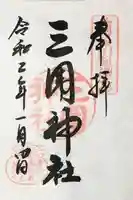 奉拝
三囲神社
令和二年一月四日